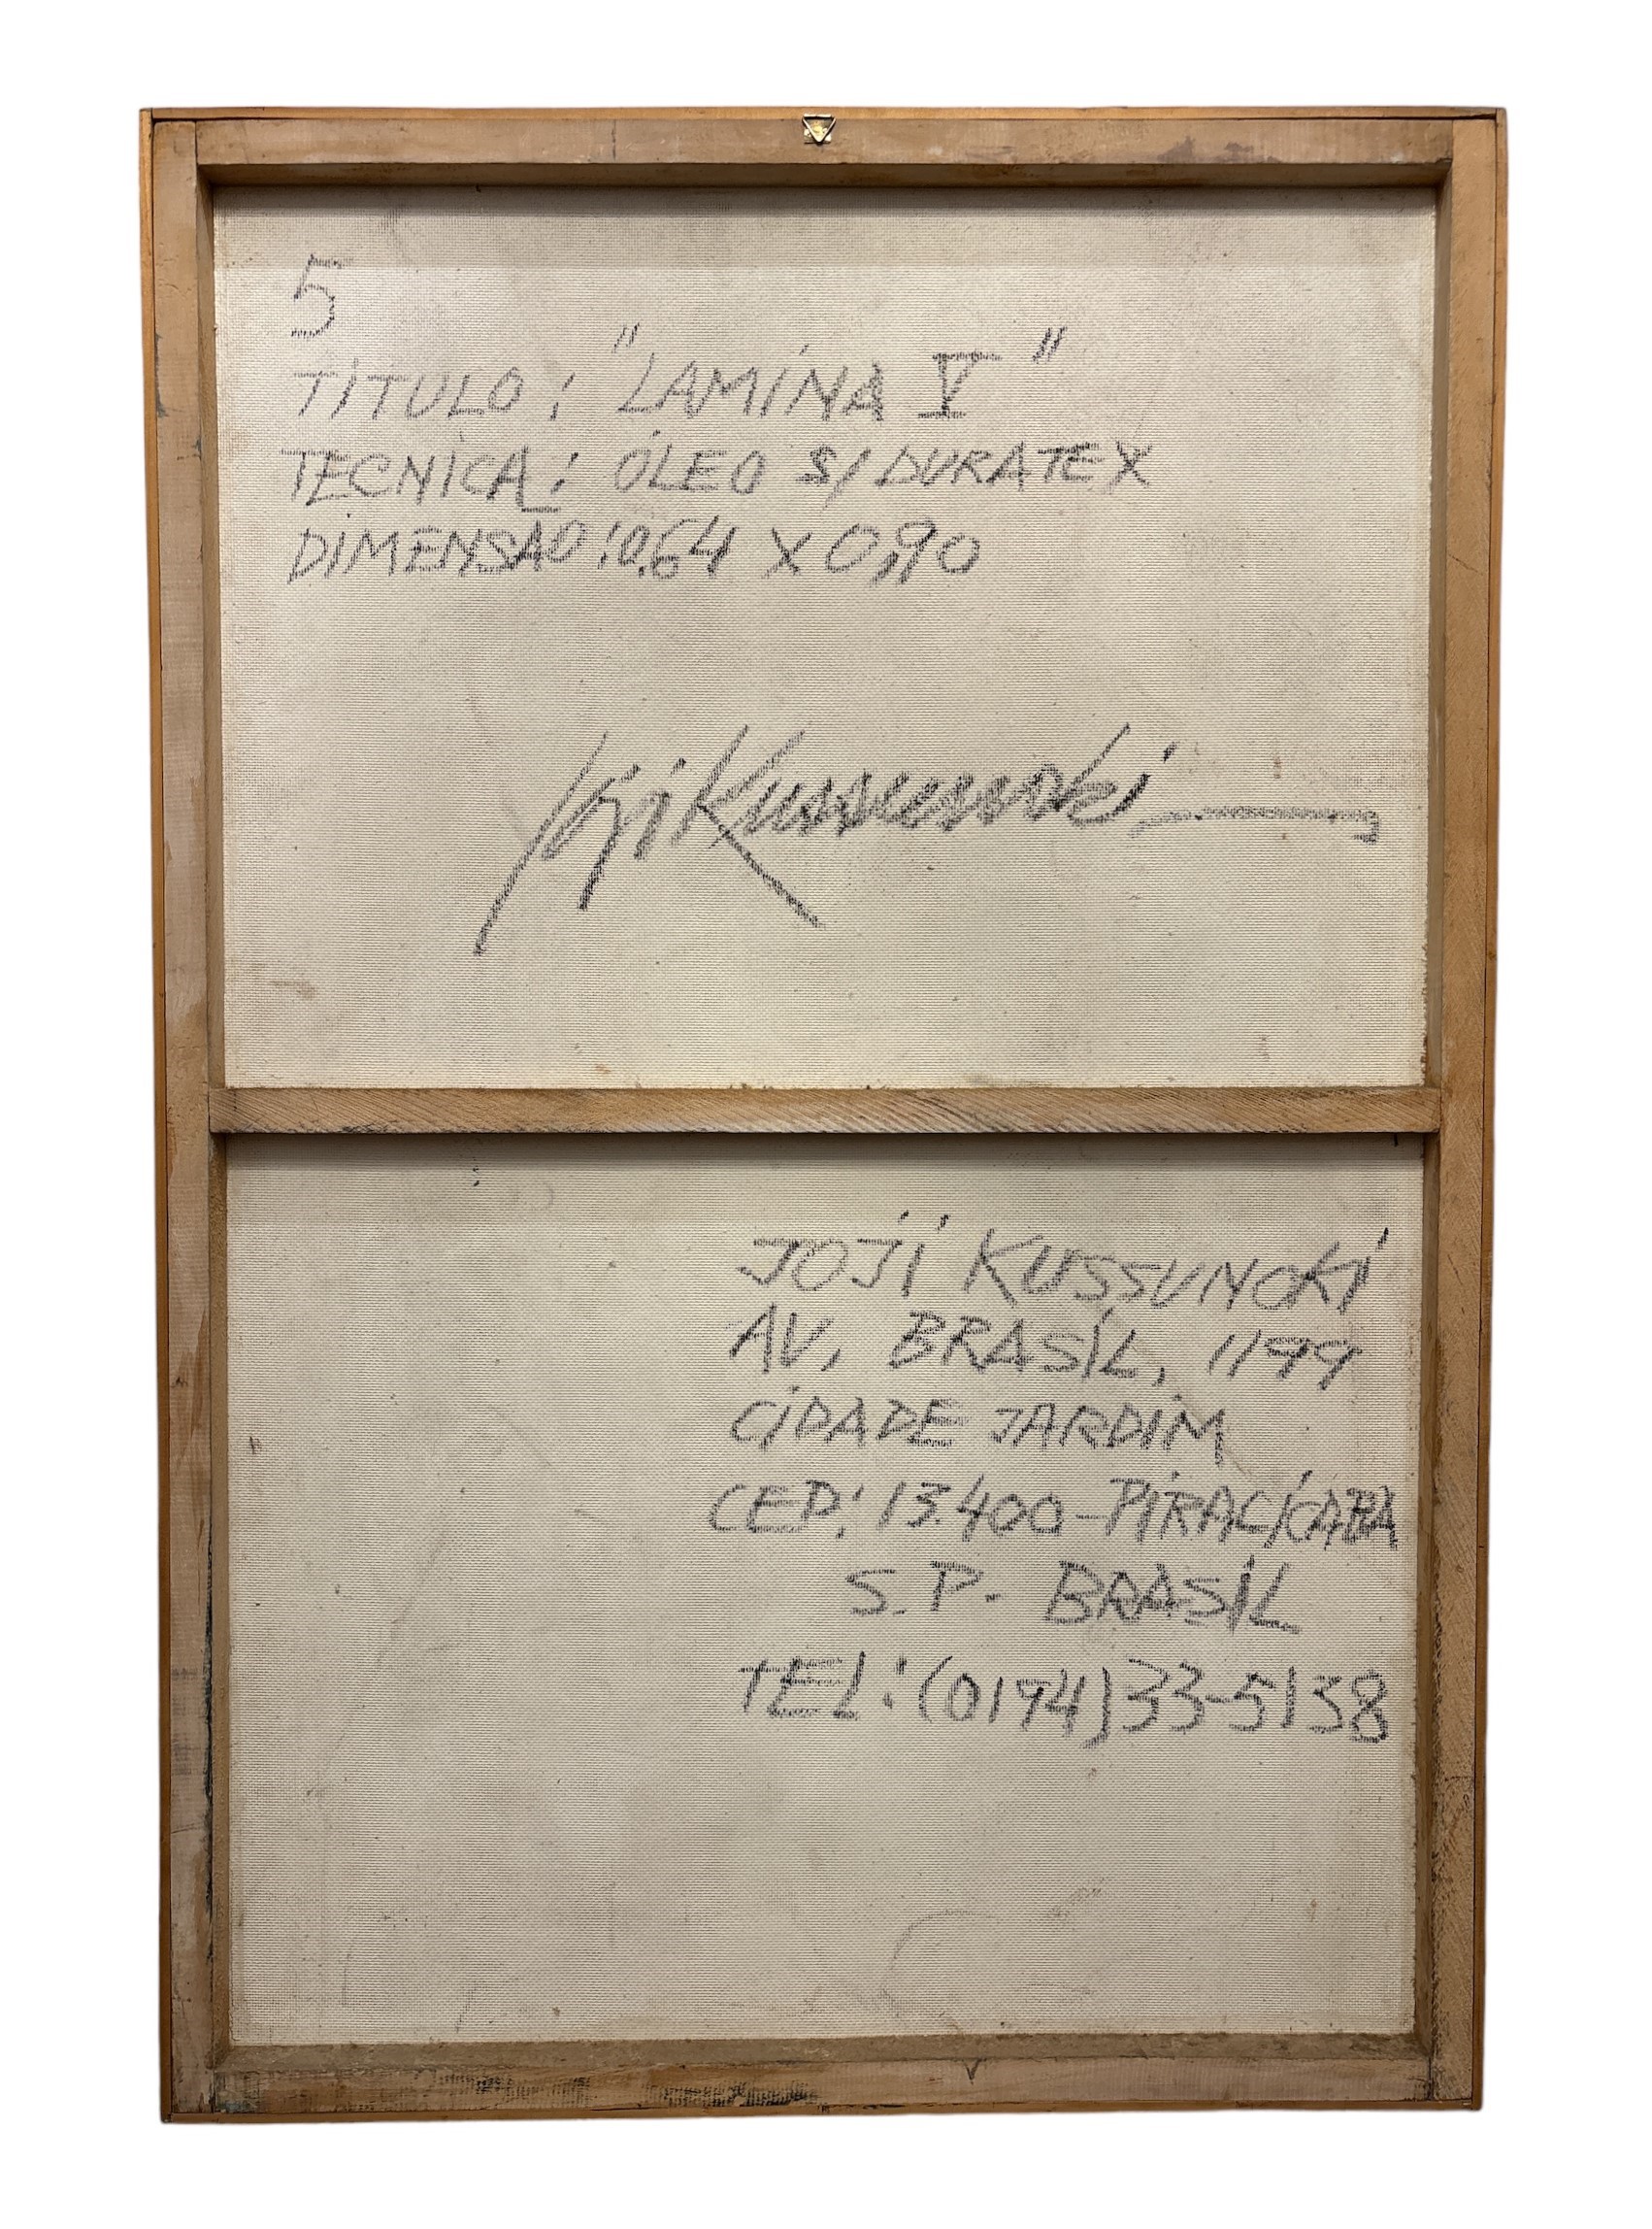 5
TITULO: "LAMINA V"
TECNICA: ÓLEO S/DURATEX
DIMENSAO: 0,64 X 0,90
Joji Kussunoki
JOJI KUSSUNOKI
AV. BRASIL, 1199
CIDADE JARDIM
CEP: 13.400-PIRACICABA
S.P. BRASIL
TEL: (0194) 33-5138